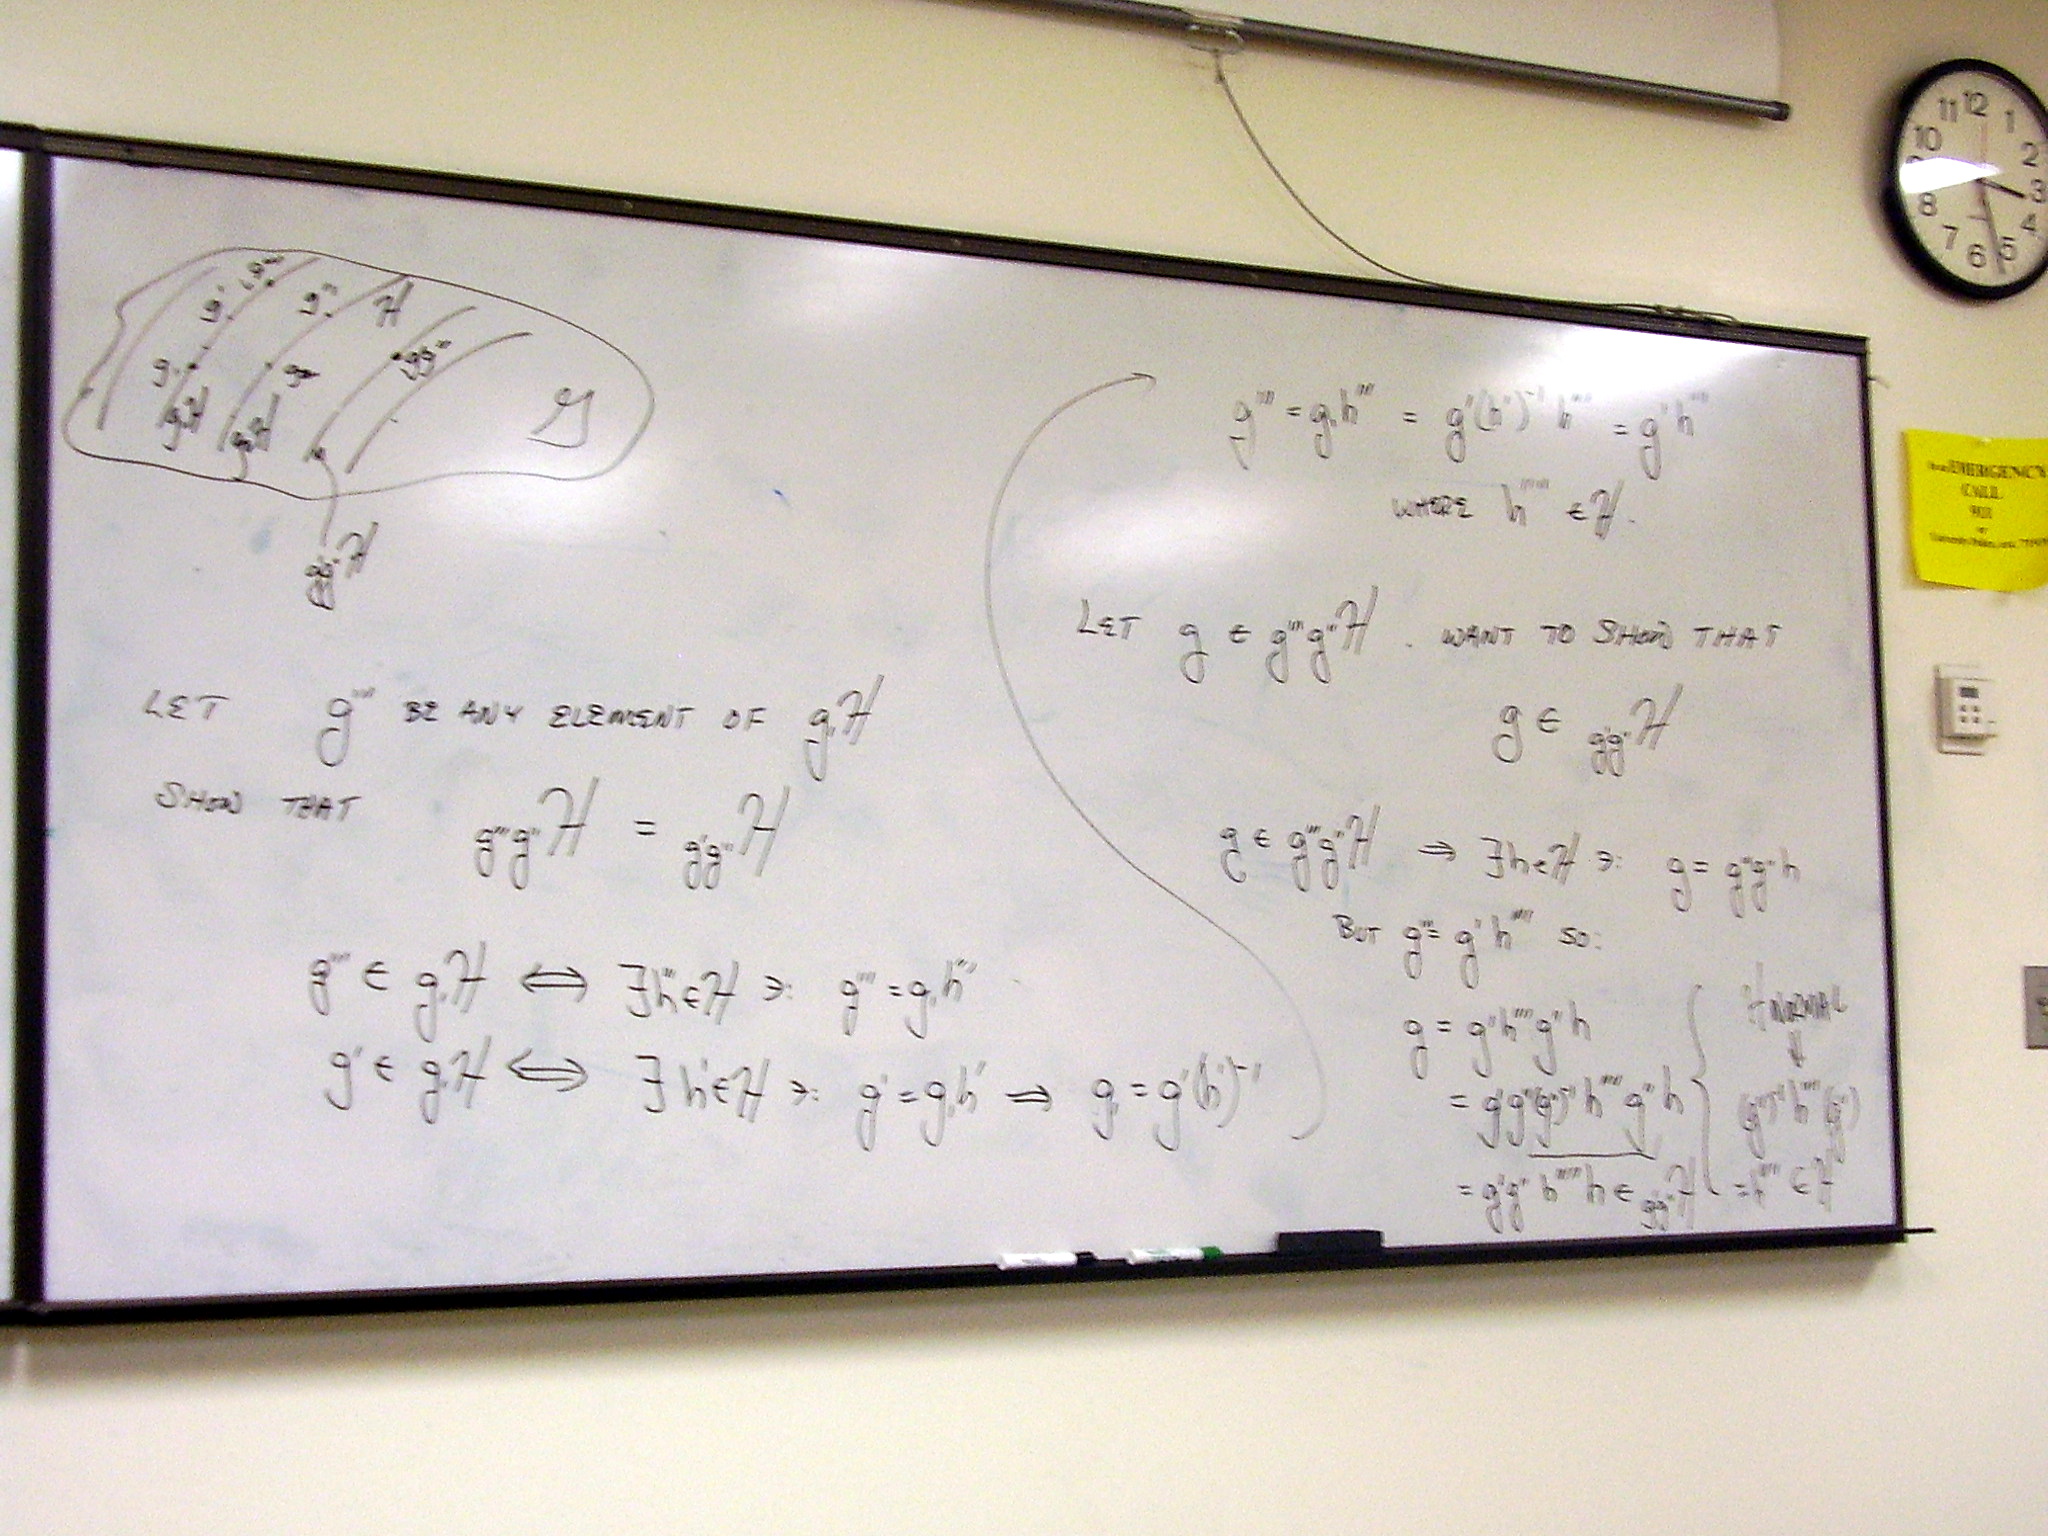 g' g'' H
g₁ g₂ g'g''
g₁H g₂H G
g'g''H
LET g''' BE ANY ELEMENT OF g₁H
SHOW THAT g'''g''H = g'g''H
g''' ∈ g₁H ⟺ ∃h'''∈H ∋: g''' = g₁h'''
g' ∈ g₁H ⟺ ∃h'∈H ∋: g' = g₁h' ⇒ g₁ = g'(h')⁻¹
g''' = g₁h''' = g'(h')⁻¹ h''' = g'h''''
WHERE h'''' ∈ H.
LET g ∈ g'''g''H . WANT TO SHOW THAT
g ∈ g'g''H
g ∈ g'''g''H ⇒ ∃h∈H ∋: g = g'''g''h
BUT g''' = g'h'''' SO:
g = g'h''''g''h
= g'g''(g'')⁻¹h''''g''h
= g'g''h'''''h ∈ g'g''H
H NORMAL
⇓
(g'')⁻¹h''''(g'')
= h''''' ∈ H
12 1 2 3 4 5 6 7 8 10 11
EMERGENCY
CALL
911
or